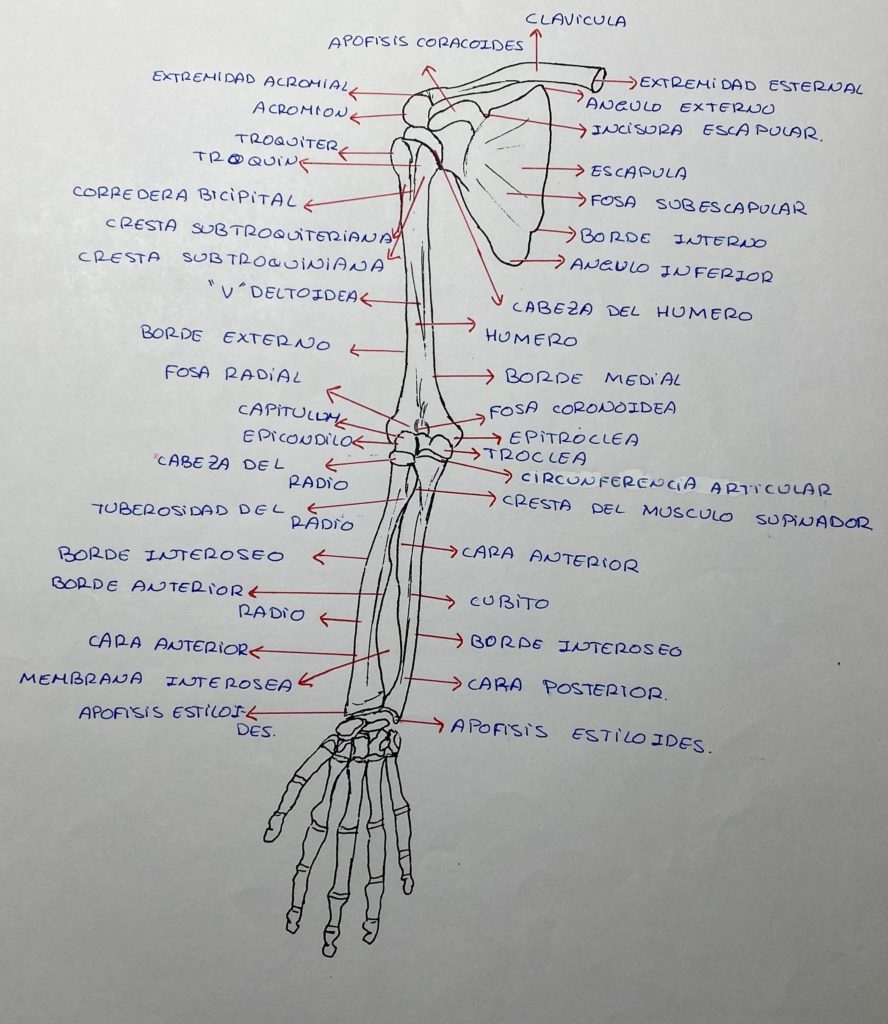 CLAVICULA
APOFISIS CORACOIDES
EXTREMIDAD ACROMIAL
EXTREMIDAD ESTERNAL
ACROMION
ANGULO EXTERNO
TROQUITER
INCISURA ESCAPULAR.
TROQUIN
ESCAPULA
CORREDERA BICIPITAL
FOSA SUBESCAPULAR
CRESTA SUBTROQUITERIANA
BORDE INTERNO
CRESTA SUBTROQUINIANA
ANGULO INFERIOR
"V" DELTOIDEA
CABEZA DEL HUMERO
BORDE EXTERNO
HUMERO
FOSA RADIAL
BORDE MEDIAL
CAPITULUM
FOSA CORONOIDEA
EPICONDILO
EPITROCLEA
TROCLEA
CABEZA DEL
RADIO
CIRCUNFERENCIA ARTICULAR
TUBEROSIDAD DEL
RADIO
CRESTA DEL MUSCULO SUPINADOR
BORDE INTEROSEO
CARA ANTERIOR
BORDE ANTERIOR
CUBITO
RADIO
CARA ANTERIOR
BORDE INTEROSEO
MEMBRANA INTEROSEA
CARA POSTERIOR.
APOFISIS ESTILOI-
DES.
APOFISIS ESTILOIDES.